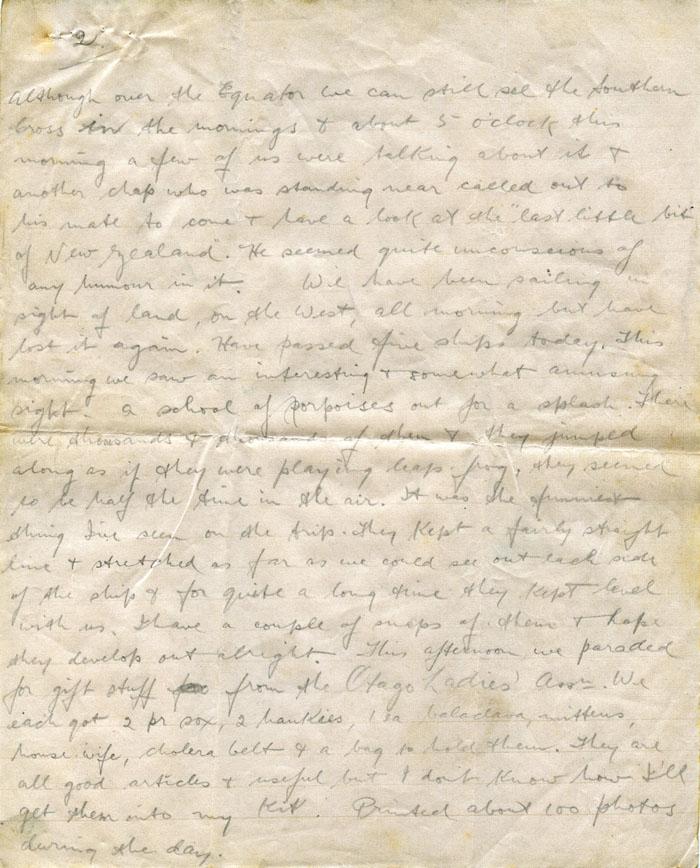 2.
Although over the Equator we can still see the Southern
Cross in the mornings & about 5 o'clock this
morning a few of us were talking about it &
another chap who was standing near called out to
his mate to come & have a look at the "last little bit
of New Zealand". He seemed quite unconscious of
any humour in it. We have been sailing in
sight of land, on the West, all morning but have
lost it again. Have passed five ships today. This
morning we saw an interesting & somewhat amusing
sight - a school of porpoises out for a splash. There
were thousands & thousands of them & they jumped
along as if they were playing leap-frog, they seemed
to be half the time in the air. It was the funniest
thing I've seen on the trip. They kept a fairly straight
line & stretched as far as we could see out each side
of the ship & for quite a long time they kept level
with us. I have a couple of snaps of them & hope
they develop out alright. This afternoon we paraded
for gift stuff from the Otago Ladies' Assn. We
each got 2 pr sox, 2 hankies, 1 ea balaclava, mittens,
house wife, cholera belt & a bag to hold them. They are
all good articles & useful but I don't know how I'll
get them into my kit. Printed about 100 photos
during the day.